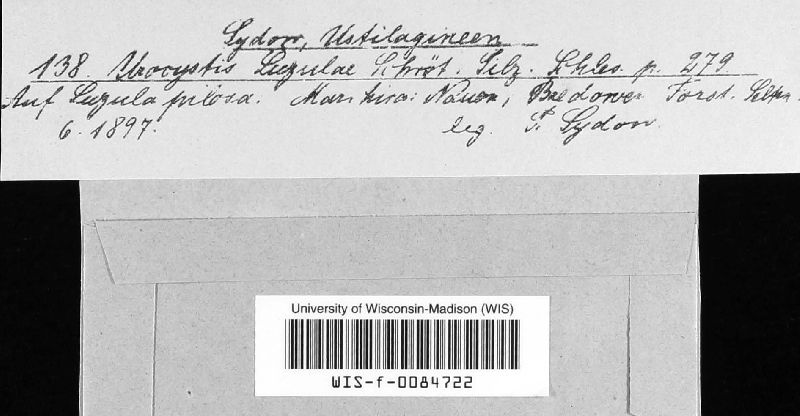 Sydow, Ustilagineen
138. Urocystis Luzulae Schröt. Pilz. Schles. p. 279
Auf Luzula pilosa. Marchica: Nauen, Bredower Forst. Selten.
6. 1897. leg. P. Sydow.
University of Wisconsin-Madison (WIS)
WIS-f-0084722